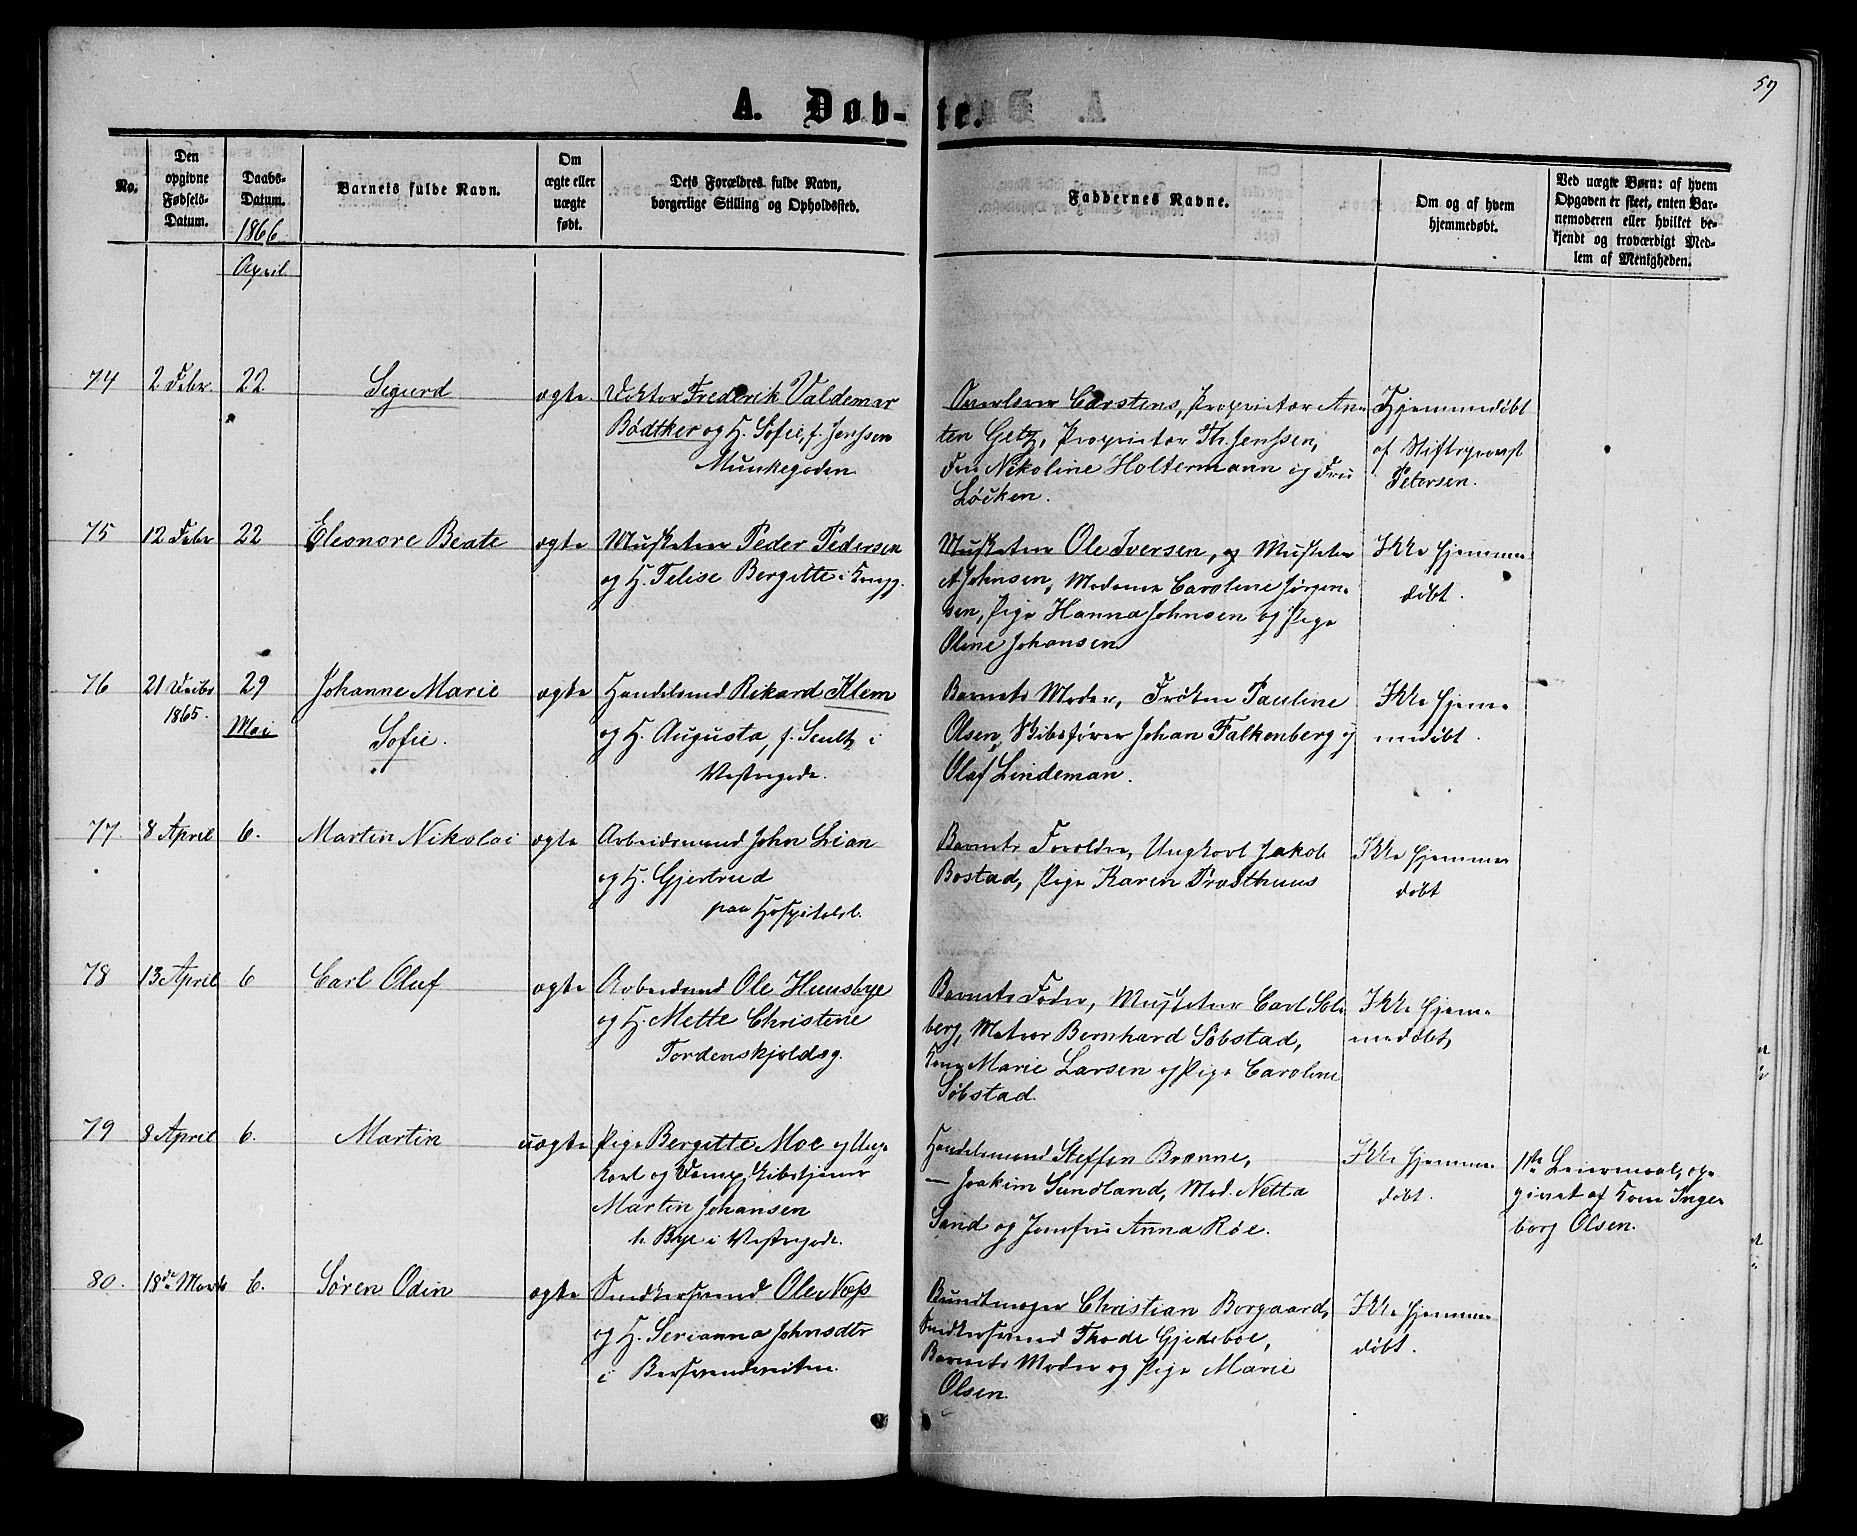 59
A. Døb-te.
No.
Den
opgivne
Fødsels-
Datum.
Daabs-
Datum.
1866
April
Barnets fulde Navn.
Om
ægte eller
uægte
født.
Dets Forældres fulde Navn,
borgerlige Stilling og Opholdssted.
Faddernes Navne.
Om og af hvem
hjemmedøbt.
Ved uægte Børn: af hvem
Opgaven er skeet, enten Bar-
nemoderen eller hvilket be-
kjendt og troværdigt Med-
lem af Menigheden.
74
2 Febr.
22
Sigurd
ægte
Doktor Frederik Valdemar
Bødtker og H. Sofie, f. Jenssen
Munkegaden
Overlærer Carstens, Proprietær An-
ton Getz, Proprietær Th. Jenssen,
Fru Nikoline Holtermann og Fru
Løcken.
Hjemmedøbt
af Stiftsprovst
Petersen.
75
12 Febr
22
Eleonore Beate
ægte
Musketeer Peder Pedersen
og H. Felise Bergitte i Kongg.
Musketeer Ole Iversen, og Musketeer
A Johnsen, Madame Caroline Jørgen-
sen, Pige Hanna Johnsen og Pige
Oline Johansen
Ikke hjemme-
døbt.
76
21 Decbr
1865.
29
Mai
Johanne Marie
Sofie.
ægte
Handelsmd Rikard Klem
og H. Augusta, f. Scultz i
Vestregade.
Barnets Moder, Frøken Pauline
Olsen, Skibsfører Johan Falkenberg og
Olaf Lindeman.
Ikke hjem-
medøbt.
77
8 April
6.
Martin Nikolai
ægte
Arbeidsmand John Lian
og H. Gjertrud
paa Hospitalsl.
Barnets Forældre, Ungkarl Jakob
Bostad, Pige Karen Prœsthuus
Ikke hjemme-
døbt
78
13 April
6
Carl Oluf
ægte
Arbeidsmd Ole Huusbye
og H. Mette Christine
Tordenskjoldsg.
Barnets Fader, Musketeer Carl Sol-
berg, Matros Bernhard Søbstad,
Kone Marie Larsen og Pige Caroline
Søbstad.
Ikke hjem-
medøbt,
79
8 April
6.
Martin
uægte
Pige Bergitte Moe og Ung-
karl og Dampskibstjener
Martin Johansen
h. Bye i Vestregade.
Handelsmand Steffen Brønne,
— Joakim Sundland, Mad. Netta
Sand og Jomfru Anna Røe.
Ikke hjemme-
døbt.
1ste Leiermaal, op-
givet af Kone Inge-
borg Olsen.
80.
18de Marts
6.
Søren Odin
ægte
Snedkersvend Ole Næss
og H. Serianna Johnsdtr
i Bersvendveiten.
Bundtmager Christian Borgaard,
Snedkersvend Thode Gjedeboe,
Barnets Moder og Pige Marie
Olsen.
Ikke hjemme-
døbt.